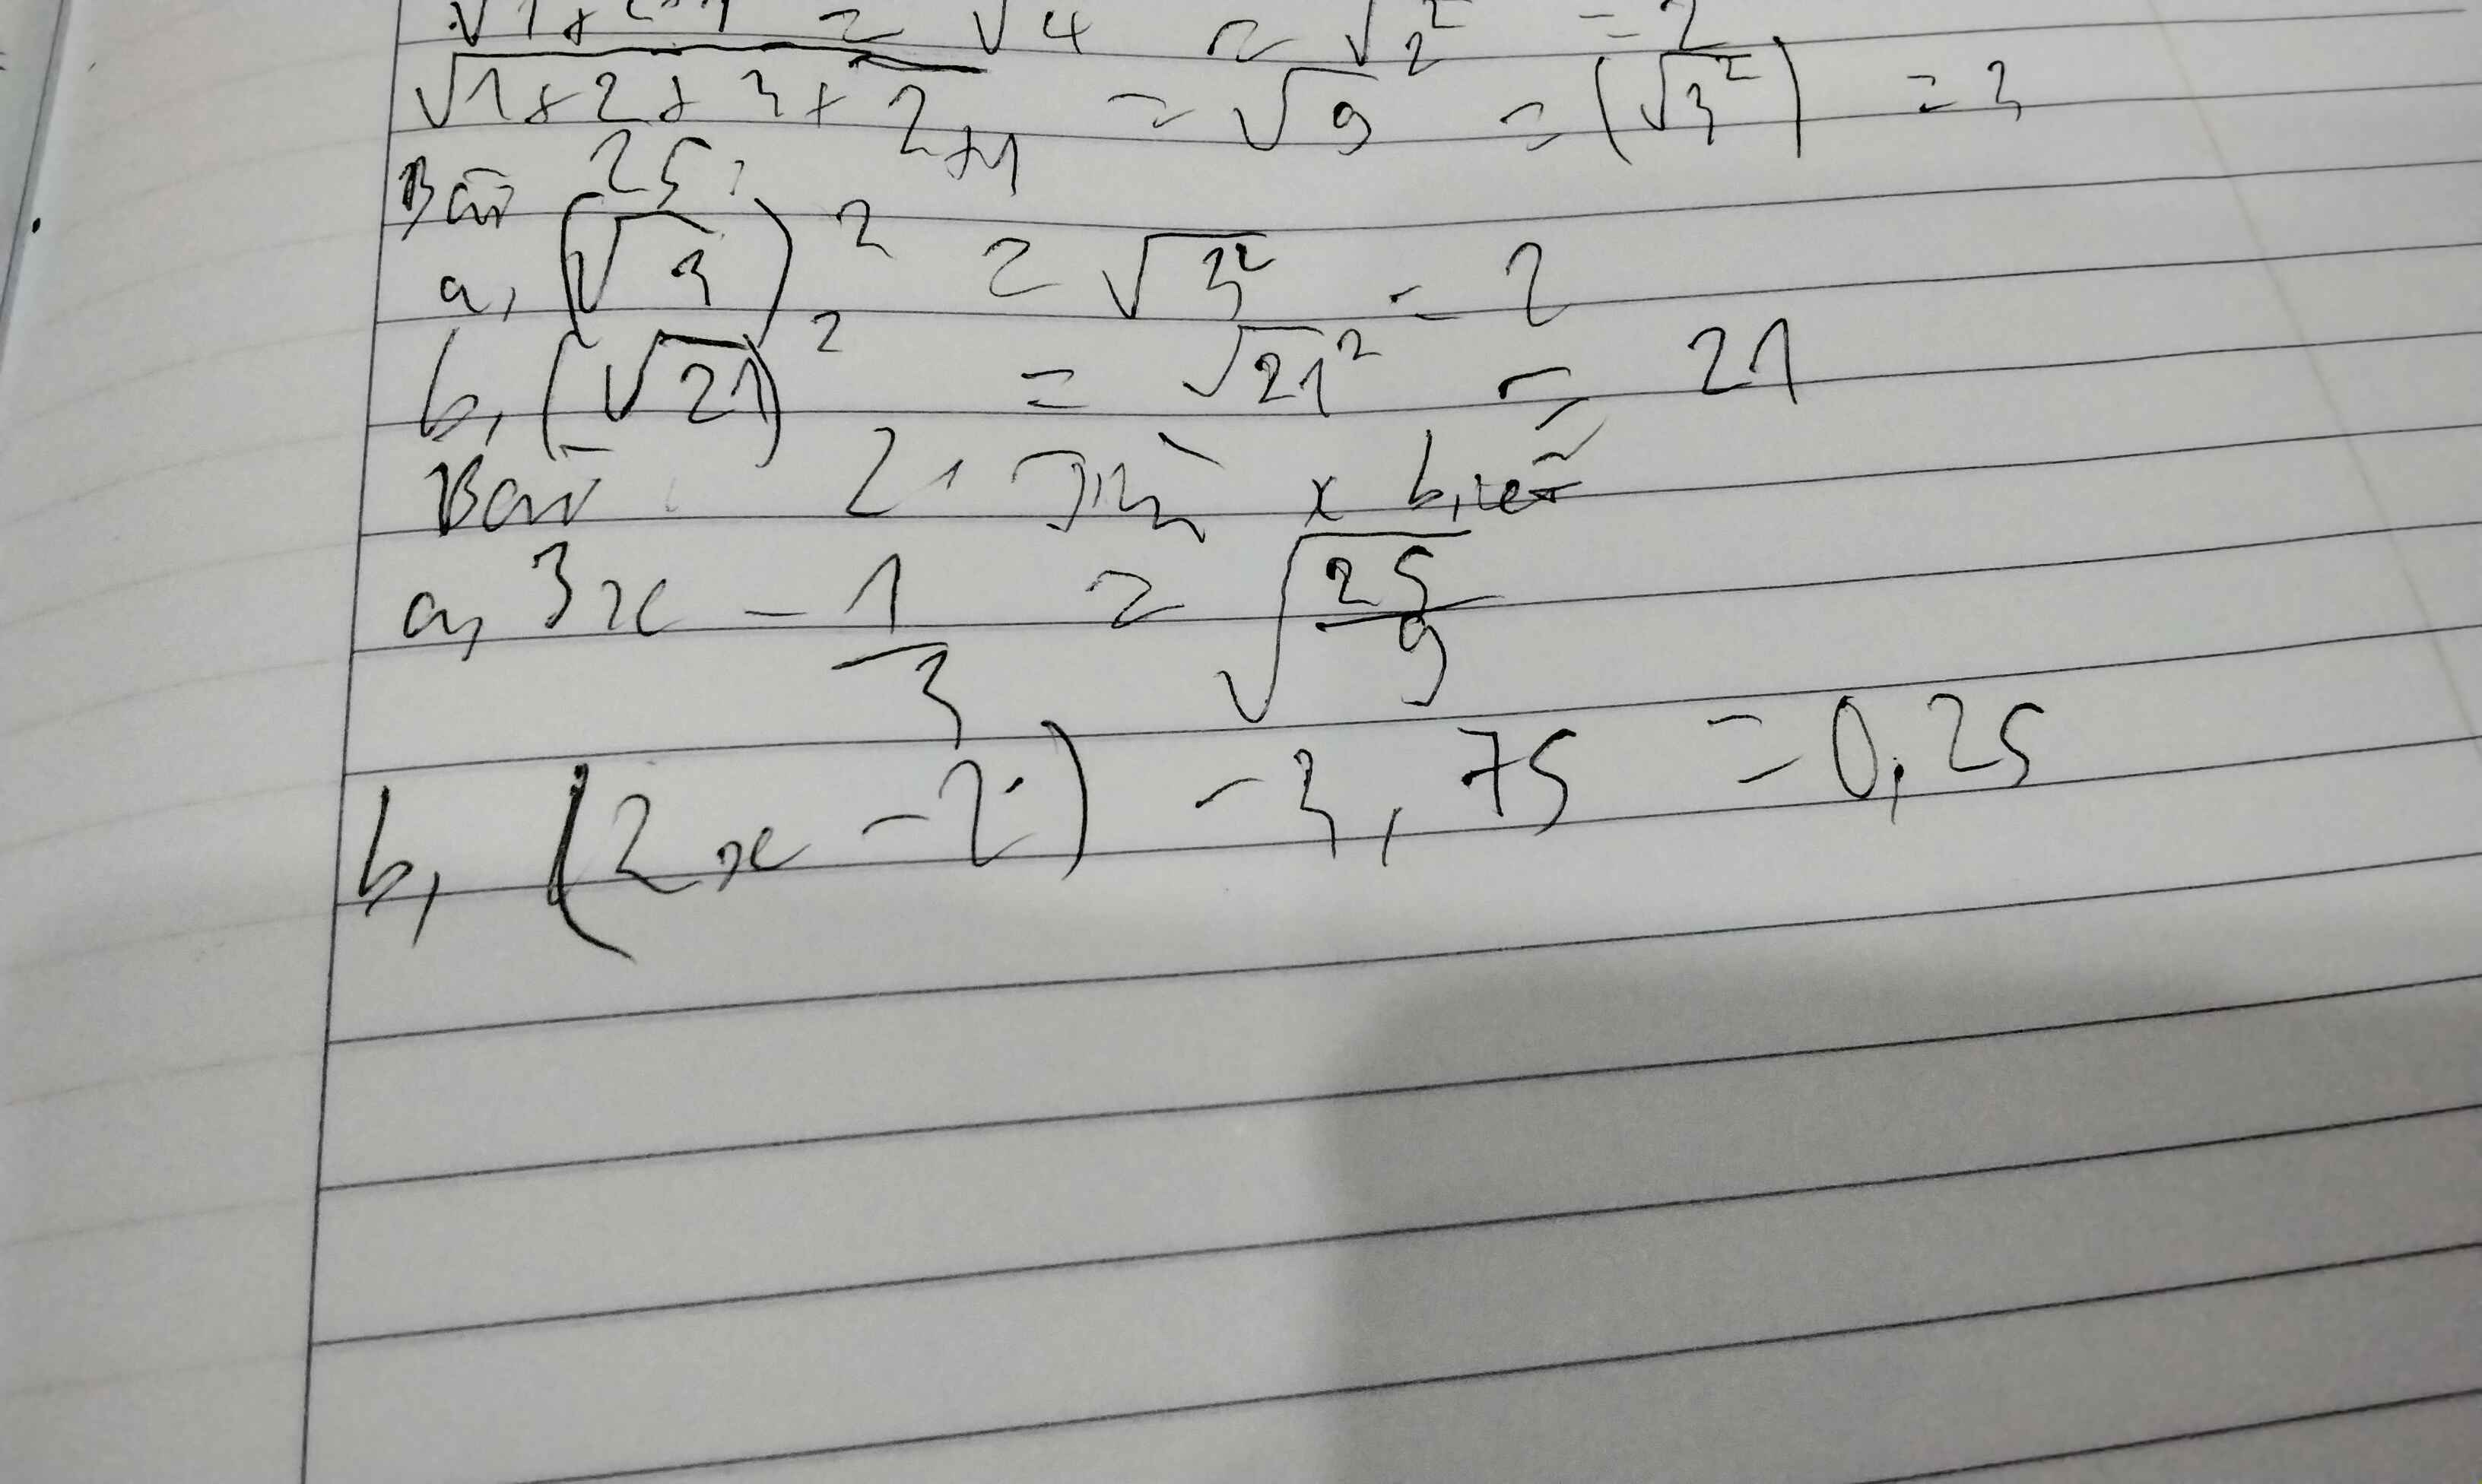 √1+2+1 = √4 = √2² = 2
√1+2+3+2+1 = √9 = (√3²) = 3
Bài 25:
a, (√3)² = √3² = 3
b, (√21)² = √21² = 21
Bài 2: Tìm x biết
a, 3x - 1/3 = √25/9
b, (2x - 2) - 3,75 = 0,25